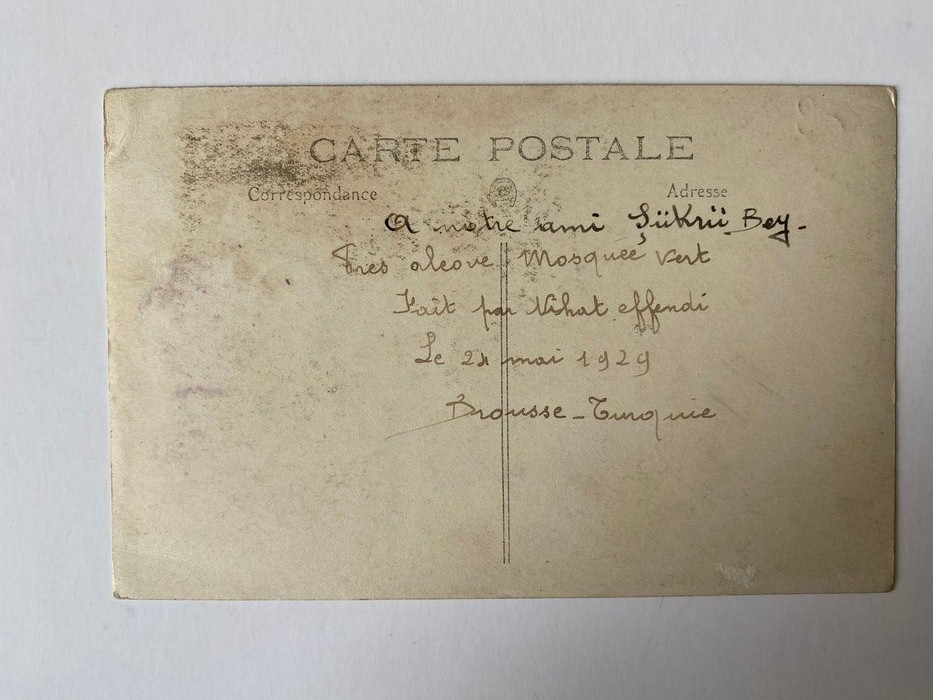 CARTE POSTALE
Correspondance
Adresse
A notre ami Şükrü Bey.
Près alcove Mosqueé Vert
Fait par Nihat effendi
Le 21 mai 1929
Brousse - Turquie